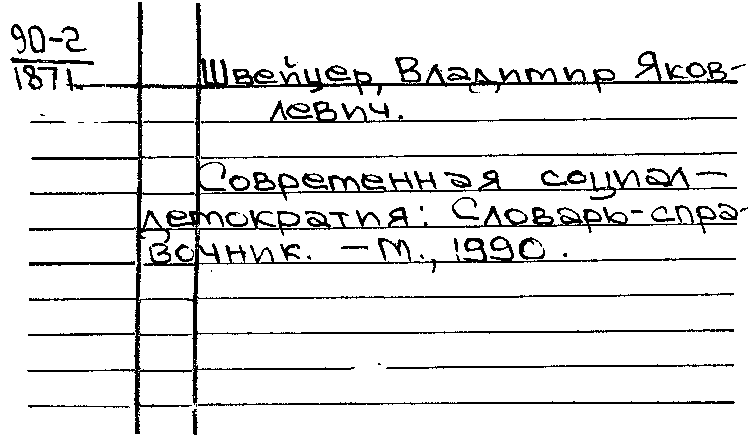 90-2
1871
Швейцер, Владимир Яков-
левич.
Современная социал-
демократия: Словарь-спра-
вочник. - М., 1990.